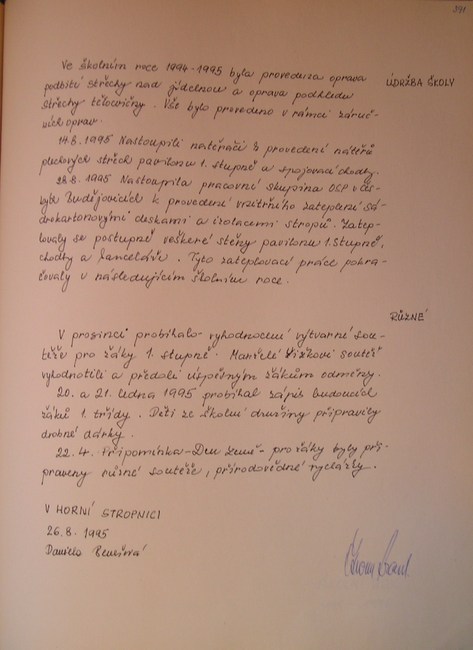 391
Ve školním roce 1994-1995 byla provedena oprava
podbití střechy nad jídelnou a oprava podhledu
střechy tělocvičny. Vše bylo provedeno v rámci záruč-
ních oprav.
ÚDRŽBA ŠKOLY
14.8.1995 Nastoupili natěrači k provedení nátěrů
plechových střech pavilonu 1. stupně a spojovací chodby.
28.8.1995 Nastoupila pracovní skupina OSP v Čes-
kých Budějovicích k provedení vnitřního zateplení sá-
drokartonovými deskami a izolacemi stropů. Zatep-
lovaly se postupně veškeré stěny pavilonu 1. stupně,
chodby a kanceláře. Tyto zateplovací práce pokra-
čovaly v následujícím školním roce.
RŮZNÉ
V prosinci probíhalo vyhodnocení výtvarné sou-
těže pro žáky 1. stupně. Manželé soutěž
vyhodnotili a předali úspěšným žákům odměny.
20. a 21. ledna 1995 probíhal zápis budoucích
žáků 1. třídy. Děti ze školní družiny připravily
drobné dárky.
22.4. Připomínka-Den Země- pro žáky byly při-
praveny různé soutěže, přírodovědné rychlázky.
V HORNÍ STROPNICI
26.8. 1995
Daniela Benešová